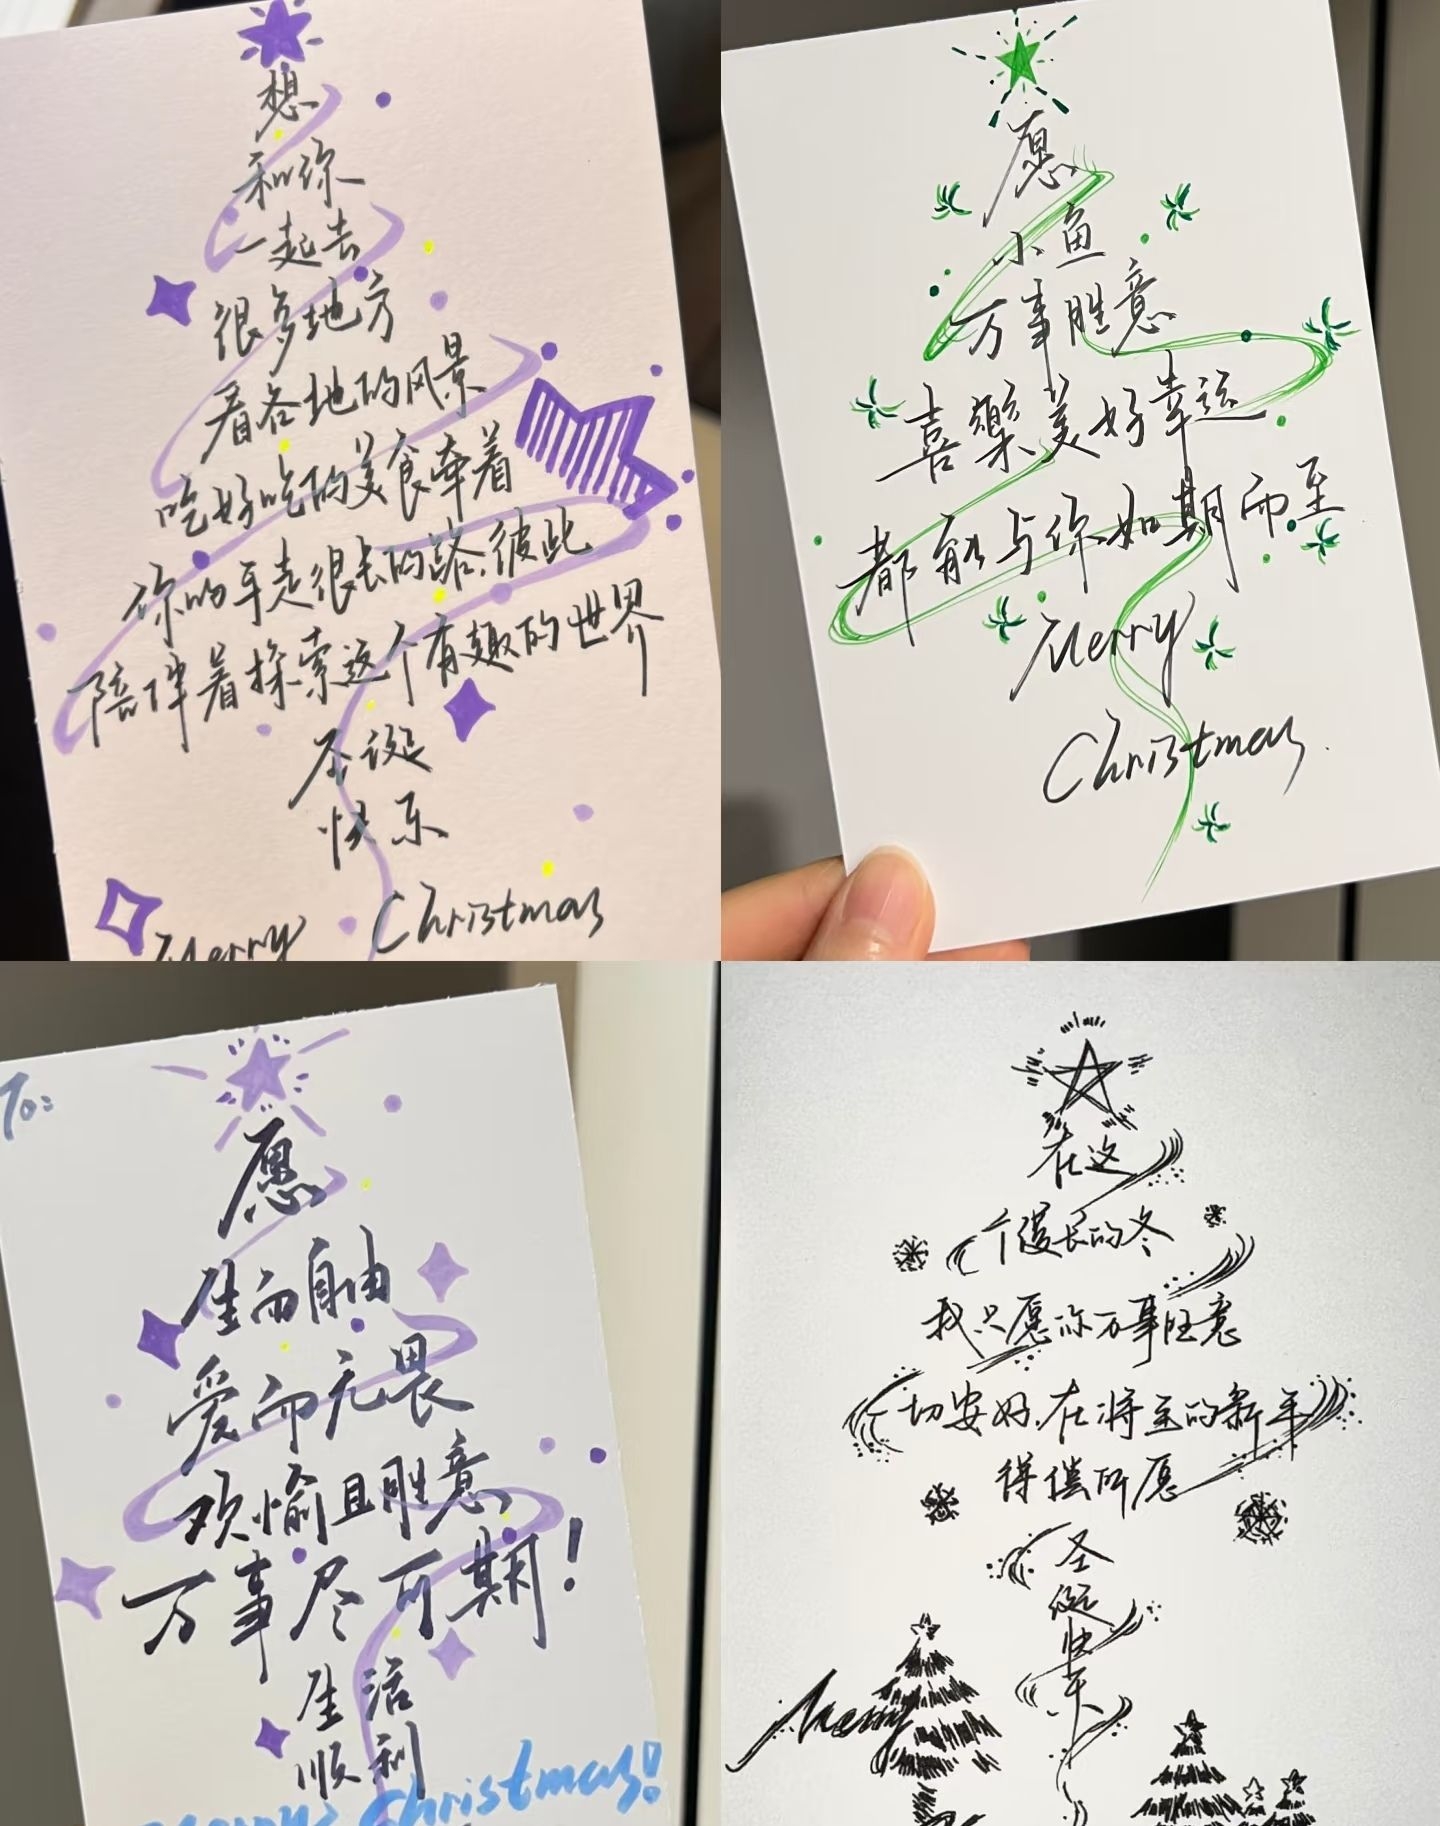 想
和你
一起去
很多地方
看各地的风景
吃好吃的美食牵着
你的手走很长的路,彼此
陪伴着探索这个有趣的世界
圣诞
快乐
Merry Christmas
愿
小鱼
万事胜意
喜樂美好幸运
都能与你如期而至
Merry
Christmas.
To:
愿
生而自由
爱而无畏
欢愉且胜意
万事尽可期!
生活
顺利
Merry Christmas!
在这
个漫长的冬
我只愿你万事胜意
一切安好.在将至的新年
得偿所愿
圣
诞
快
乐
Merry